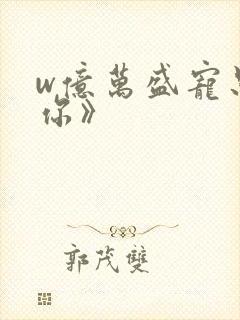 w億萬盛寵
你》
郭茂雙